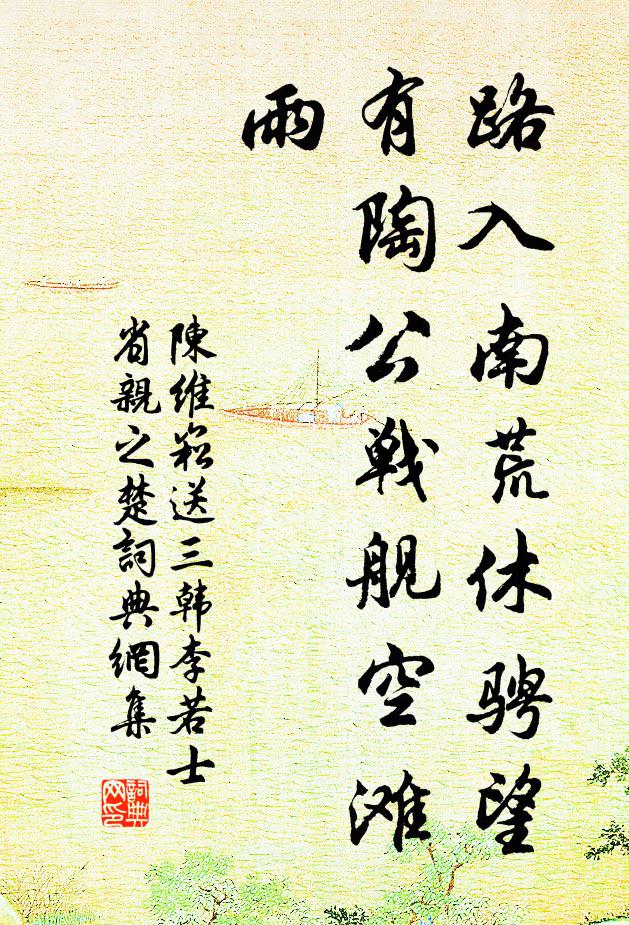 路入南荒休骋望
有陶公战舰空滩
雨
陳維崧送三韩李若士
省親之楚詞典網集
詞典
网印